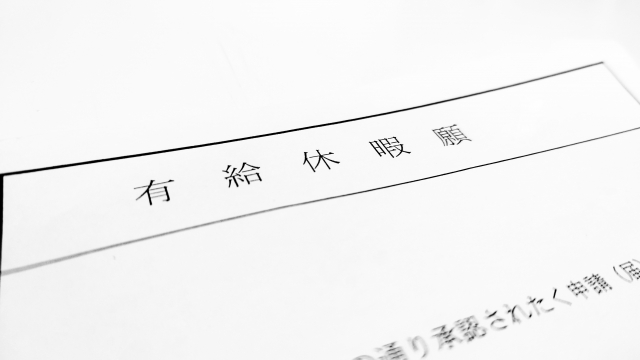 有給休暇願
の通り承認されたく申請（届